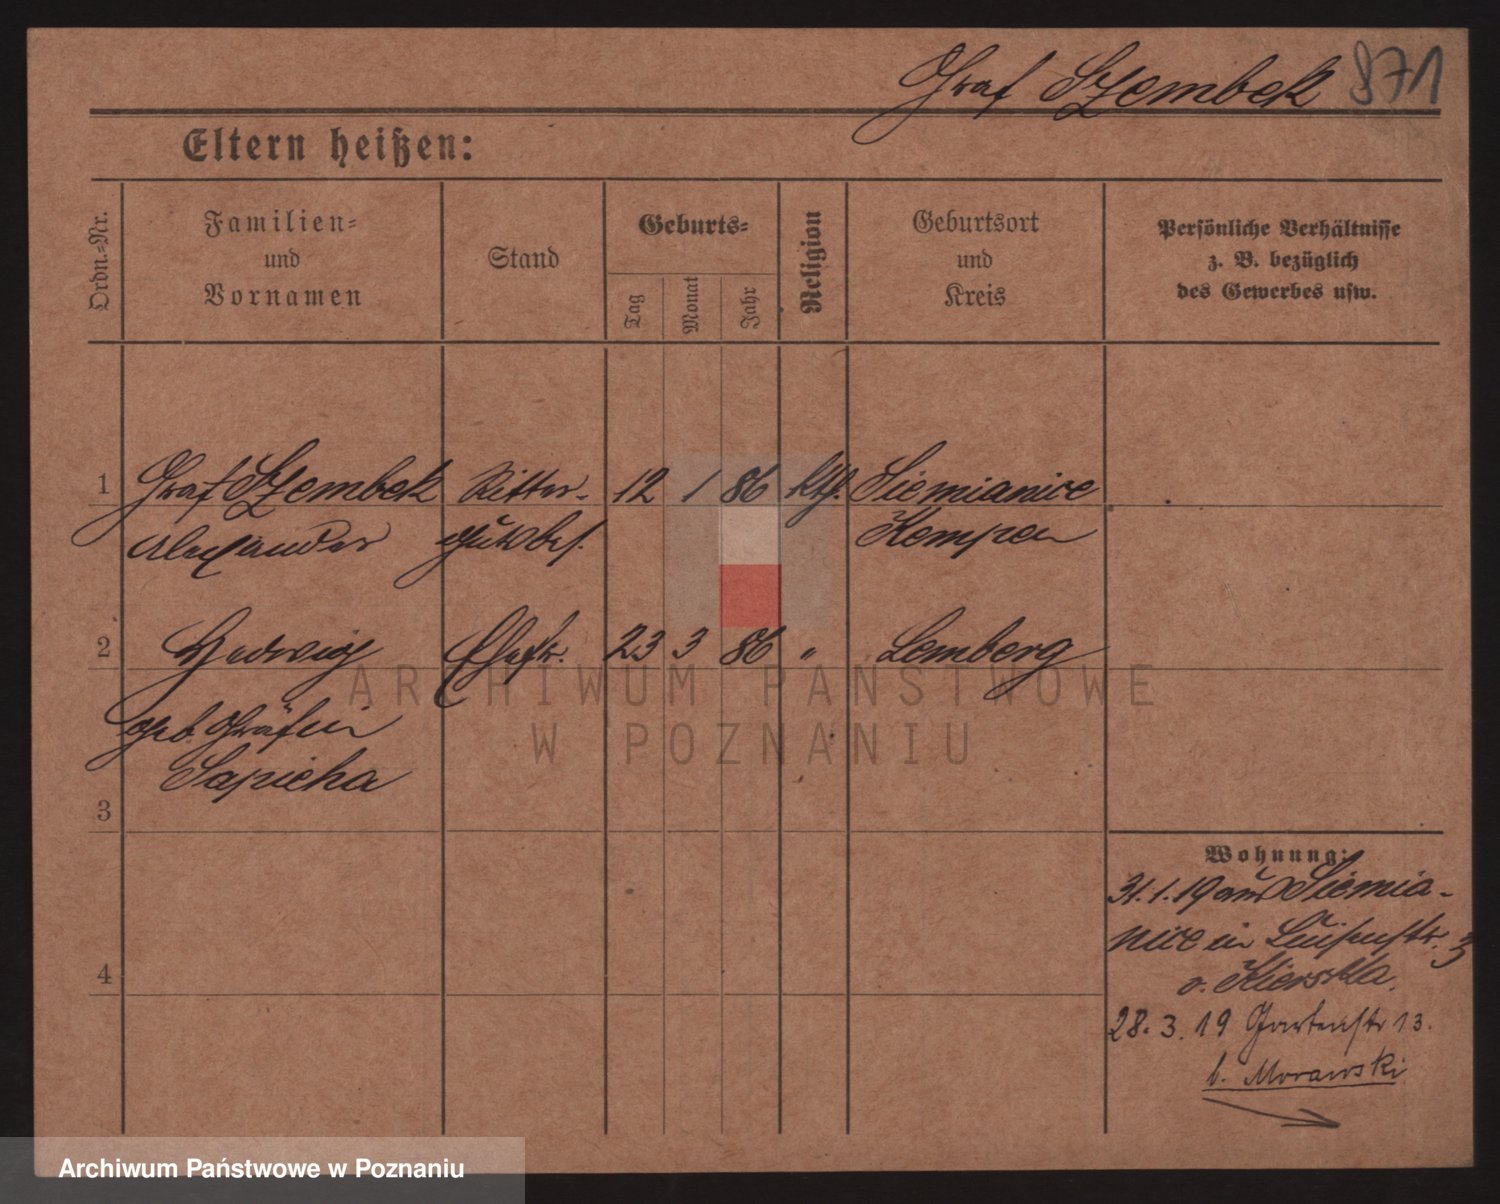 Graf Szembek 871
Eltern heißen:
Ordn.-Nr.
Familien-
und
Vornamen
Stand
Geburts-
Tag
Monat
Jahr
Religion
Geburtsort
und
Kreis
Persönliche Verhältnisse
z. B. bezüglich
des Gewerbes usw.
1 Graf Szembek Ritter- 12 1 86 kth. Siemianice
Alexander gutsbes. Kempen
2 Hedwig Ehefr. 23 3 86 " Lemberg
geb. Gräfin
Sapieha
3
4
Wohnung:
31.1.19 aus Siemia-
nice in Luisenstr. 3
v. Kierska.
28.3.19 Gartenstr 13.
b. Morawski
ARCHIWUM PAŃSTWOWE
W POZNANIU
Archiwum Państwowe w Poznaniu